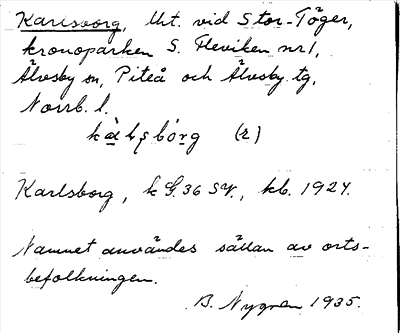 Karlsborg, tht. vid Stor-Töger,
kronoparken S. Fleviken nr 1,
Älvsby sn, Piteå och Älvsby tg,
Norrb. l.
(2)
Karlsborg, k G. 36 SV., kb. 1924.
Namnet användes sällan av orts-
befolkningen.
B. Nygren 1935.